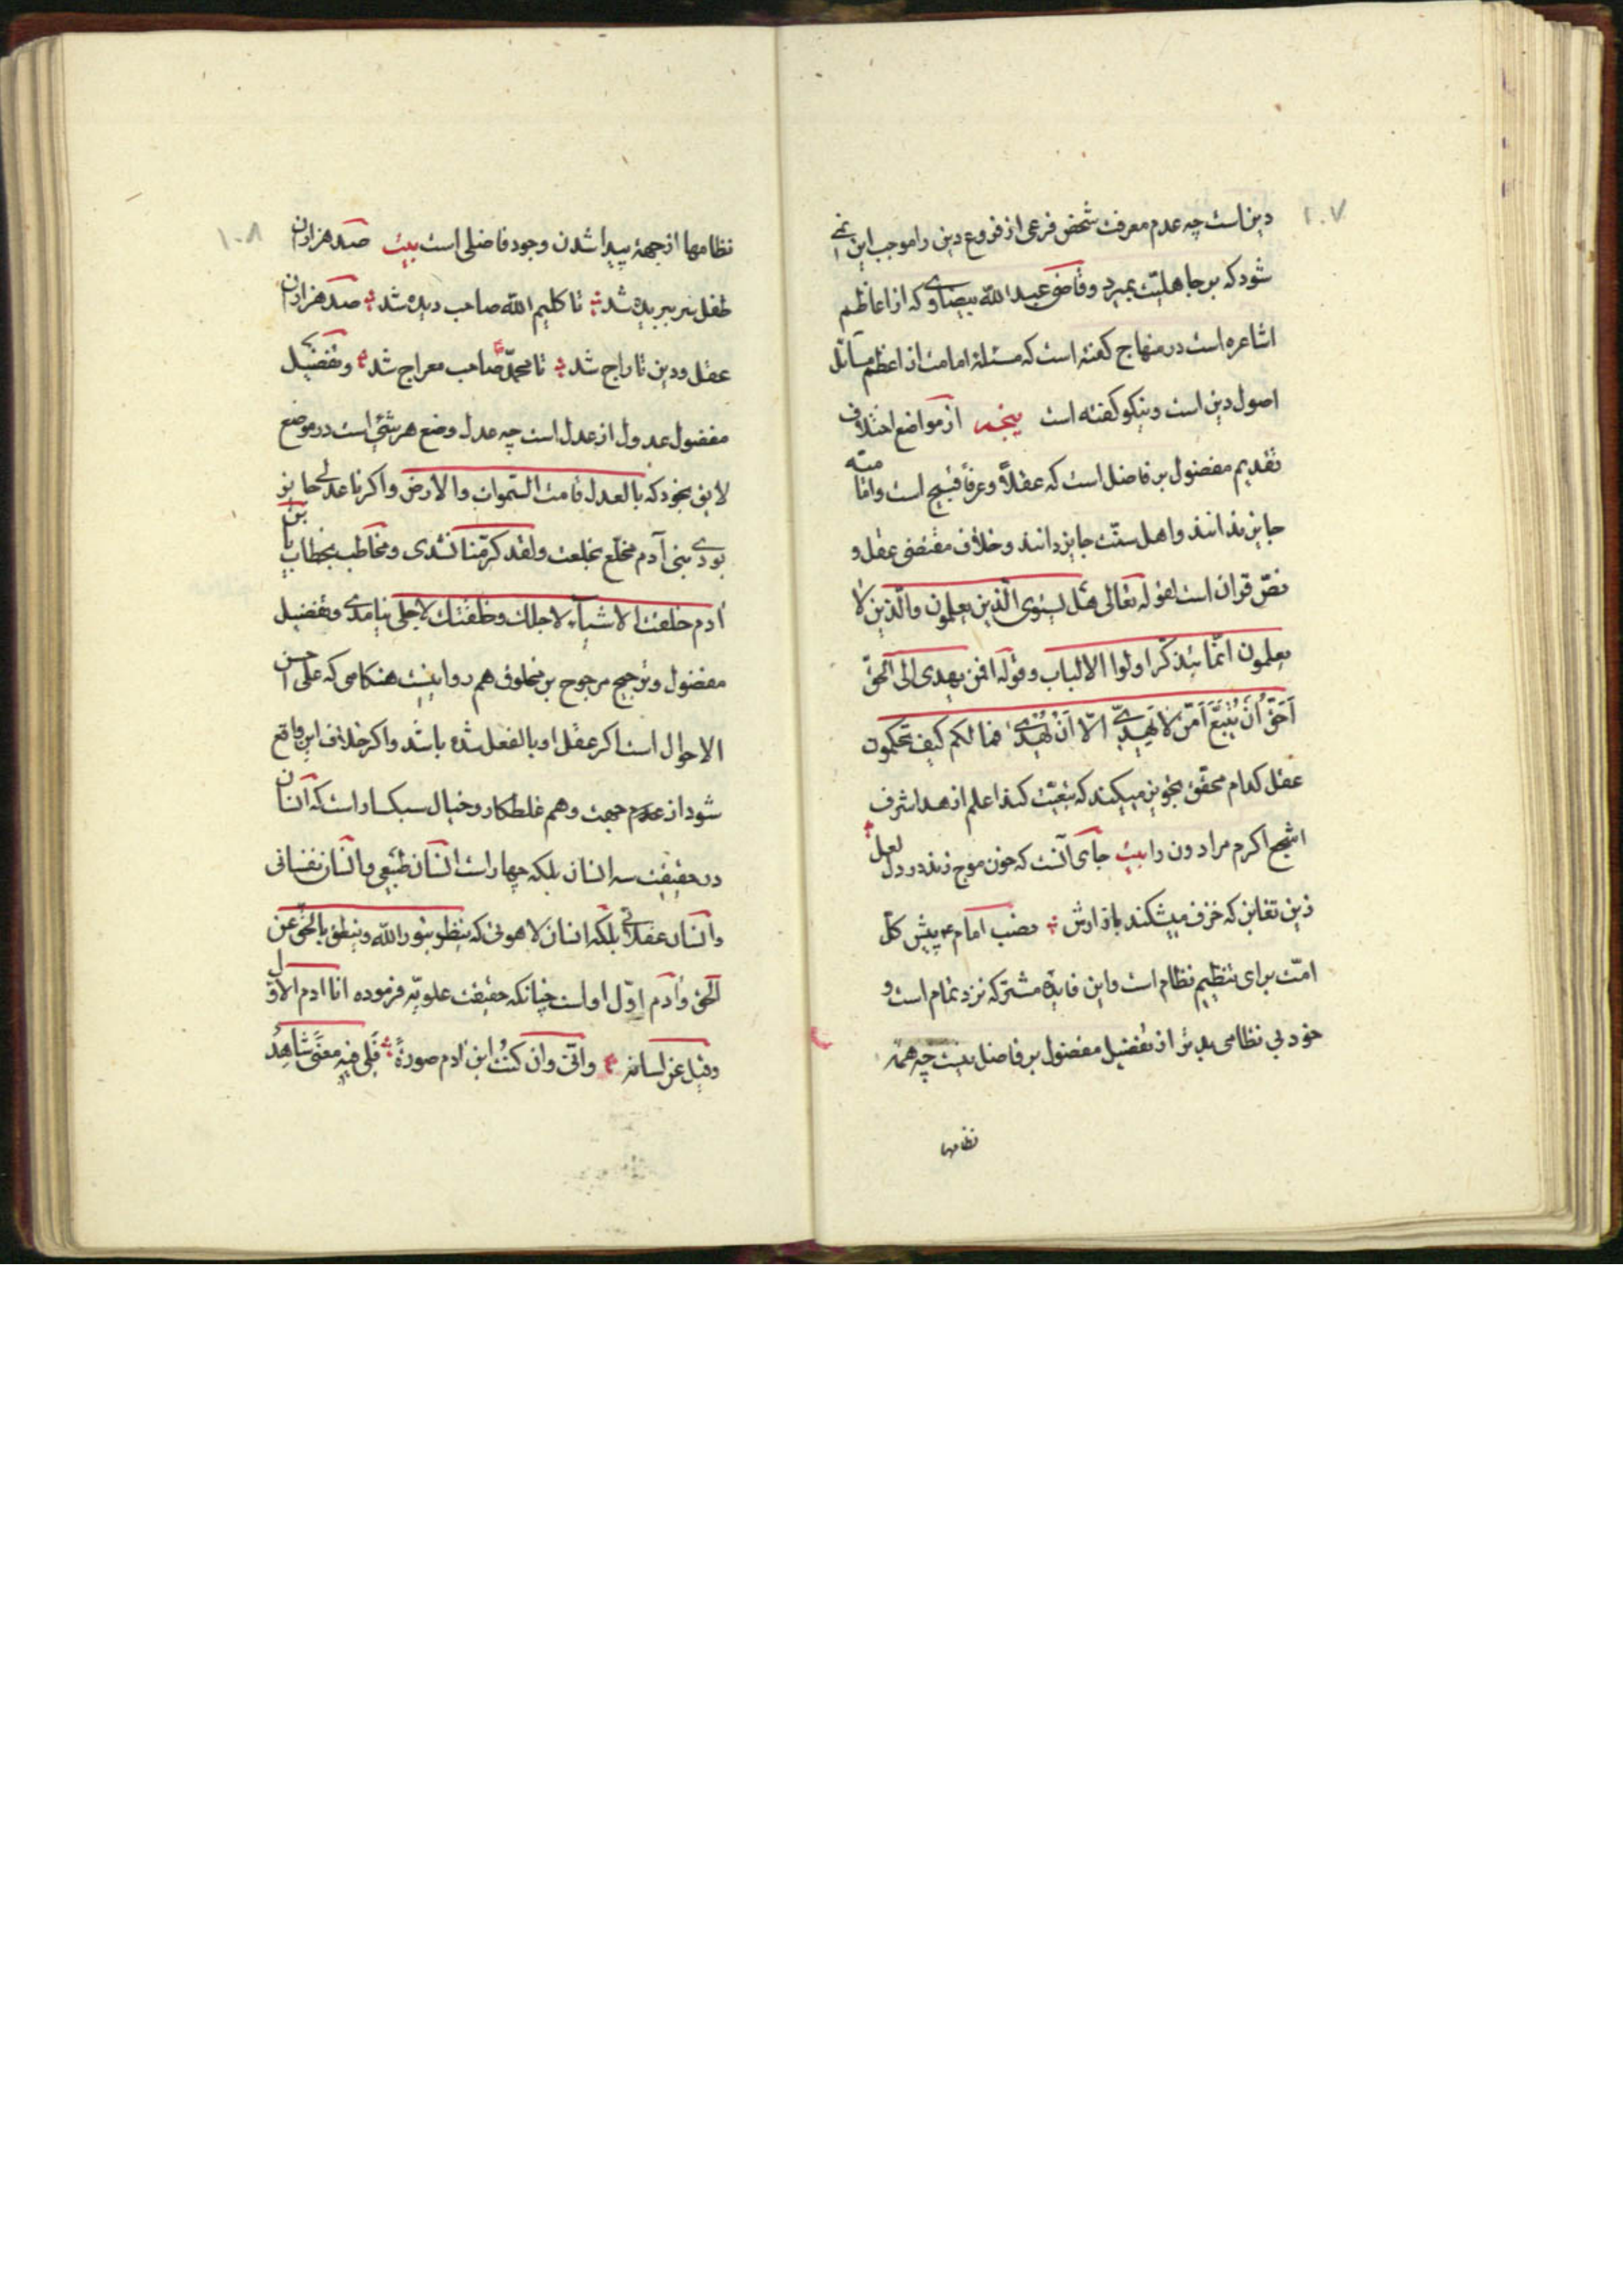 ۱۰۷
دین است چه عدم معرفت شخص فرعی از فروع دین را موجب این نمی
شود که بر جاهلیّت بمیرد و قاضی عبد الله بیضاوی که از اعاظم
اشاعره است در منهاج گفته است که مسئلهٔ امامت از اعظم مسائل
اصول دین است و نیکو گفته است پنجم از مواضع اختلاف
تقدیم مفضول بر فاضل است که عقلاً و عرفاً قبیح است و امامیّه
جایز ندانند و اهل سنّت جایز دانند و خلاف مقتضی عقل و
نصّ قران است لقوله تعالی هل یستوی الّذین یعلمون والّذین لا
یعلمون انّما یتذکّر اولوا الالباب و قوله افمن یهدی الی الحقّ
اَحَقُّ اَنْ یُتَّبَعَ اَمَّنْ لا یَهِدّی الّا اَنْ یُهْدی فما لکم کیف تحکمون
عقل کدام محقق تجویز میکند که تبعیّت کند اعلم ازهد اشرف
اشجع اکرم مر ادون را بیت جای آنست که خون موج زند در دل لعل
زین تغابن که خزف میشکند بازارش نصب امام ع پیش کلّ
امّت برای تنظیم نظام است و این فایدهٔ مشترکه نزد تمام است و
خود بی نظامی بدتر از تفضیل مفضول بر فاضل نیست چه همه
نظامها
۱۰۸
نظامها از جههٔ پیدا شدن وجود فاضلی است بیت صد هزاران
طفل سر ببریده شد تا کلیم الله صاحب دیده شد صد هزاران
عقل و دین تاراج شد تا محمّد ص صاحب معراج شد و تفضیل
مفضول عدول از عدل است چه عدل وضع هر شیٔ است در موضع
لایق بخود که بالعدل قامت السّموات والارض و اگر نا عدلی جایز
بودی بنی آدم مخلّع بخلعت ولقد کرّمنا نشدی و مخاطب بخطاب یا بن
ادم خلقت الاشیآء لاجلک وخلقتک لاجلی نیامدی و تفضیل
مفضول و ترجیح مرجوح بر مخلوق هم روا نیست هنگامی که علی احسن
الاحوال است اگر عقل او بالفعل شده باشد و اگر خلاف این واقع
شود از عدم جهت و هم غلطکار و خیال سبکسار است که انسان
در حقیقت سه انسان بلکه چهار است انسان طبیعی و انسان نفسانی
و انسان عقلانی بلکه انسان لاهوتی که ینظر بنور الله وینطق بالحقّ عن
الحقّ و آدم اوّل او است چنانکه حقیقت علویّه فرموده انا ادم الاوّل
وقیل عن لسانه وانّی وان کنتُ ابن ادم صورةً فلی فیه معنًی شاهِدُ